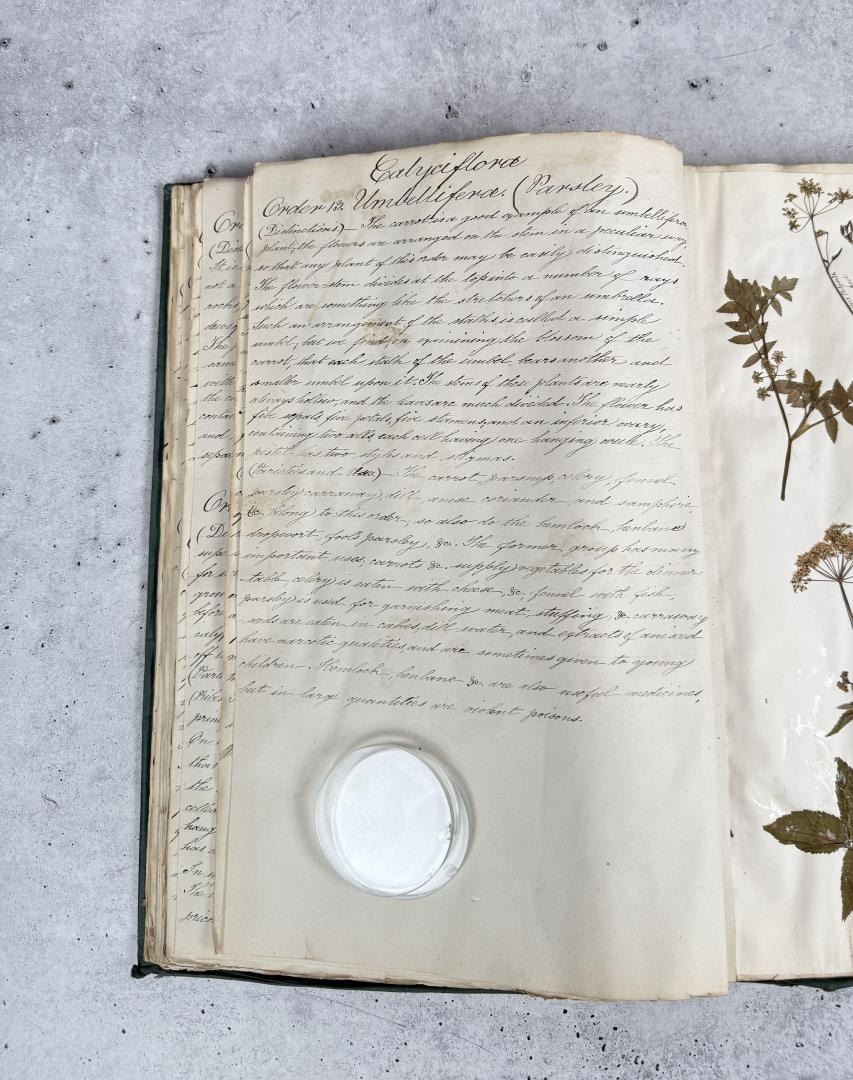 Calyciflora
Order 13. Umbelliferæ. (Parsley.)
(Distinctions) – The carrot is a good example of an umbelliferous
plant, the flowers are arranged on the stem in a peculiar way,
so that any plant of this order may be easily distinguished.
The flower stem divides at the top into a number of rays
which are something like the stretchers of an umbrella.
Such an arrangement of the stalks is called a simple
umbel, but we find, on examining the blossom of the
carrot, that each stalk of the umbel bears another and
smaller umbel upon it. The stems of these plants are nearly
always hollow, and the leaves are much divided. The flower has
five sepals, five petals, five stamens, and an inferior ovary,
containing two cells, each cell having one hanging ovule. The
pistil has two styles and stigmas.
(Varieties and Uses.) – The carrot, parsnip, celery, fennel
parsley, carraway, dill, anise, coriander, and samphire,
&c. belong to this order, so also do the hemlock, henbane
dropwort, fools parsley, &c. The former group has many
important uses, carrots &c. supply vegetables for the dinner
table, celery is eaten with cheese, &c, fennel with fish,
parsley is used for garnishing meat, stuffing, &c. carraway
seeds are eaten in cakes, dill water, and extracts of aniseed
have narcotic qualities, and are sometimes given to young
children. Hemlock, henbane &c. are also useful medicines,
but in large quantities are violent poisons.